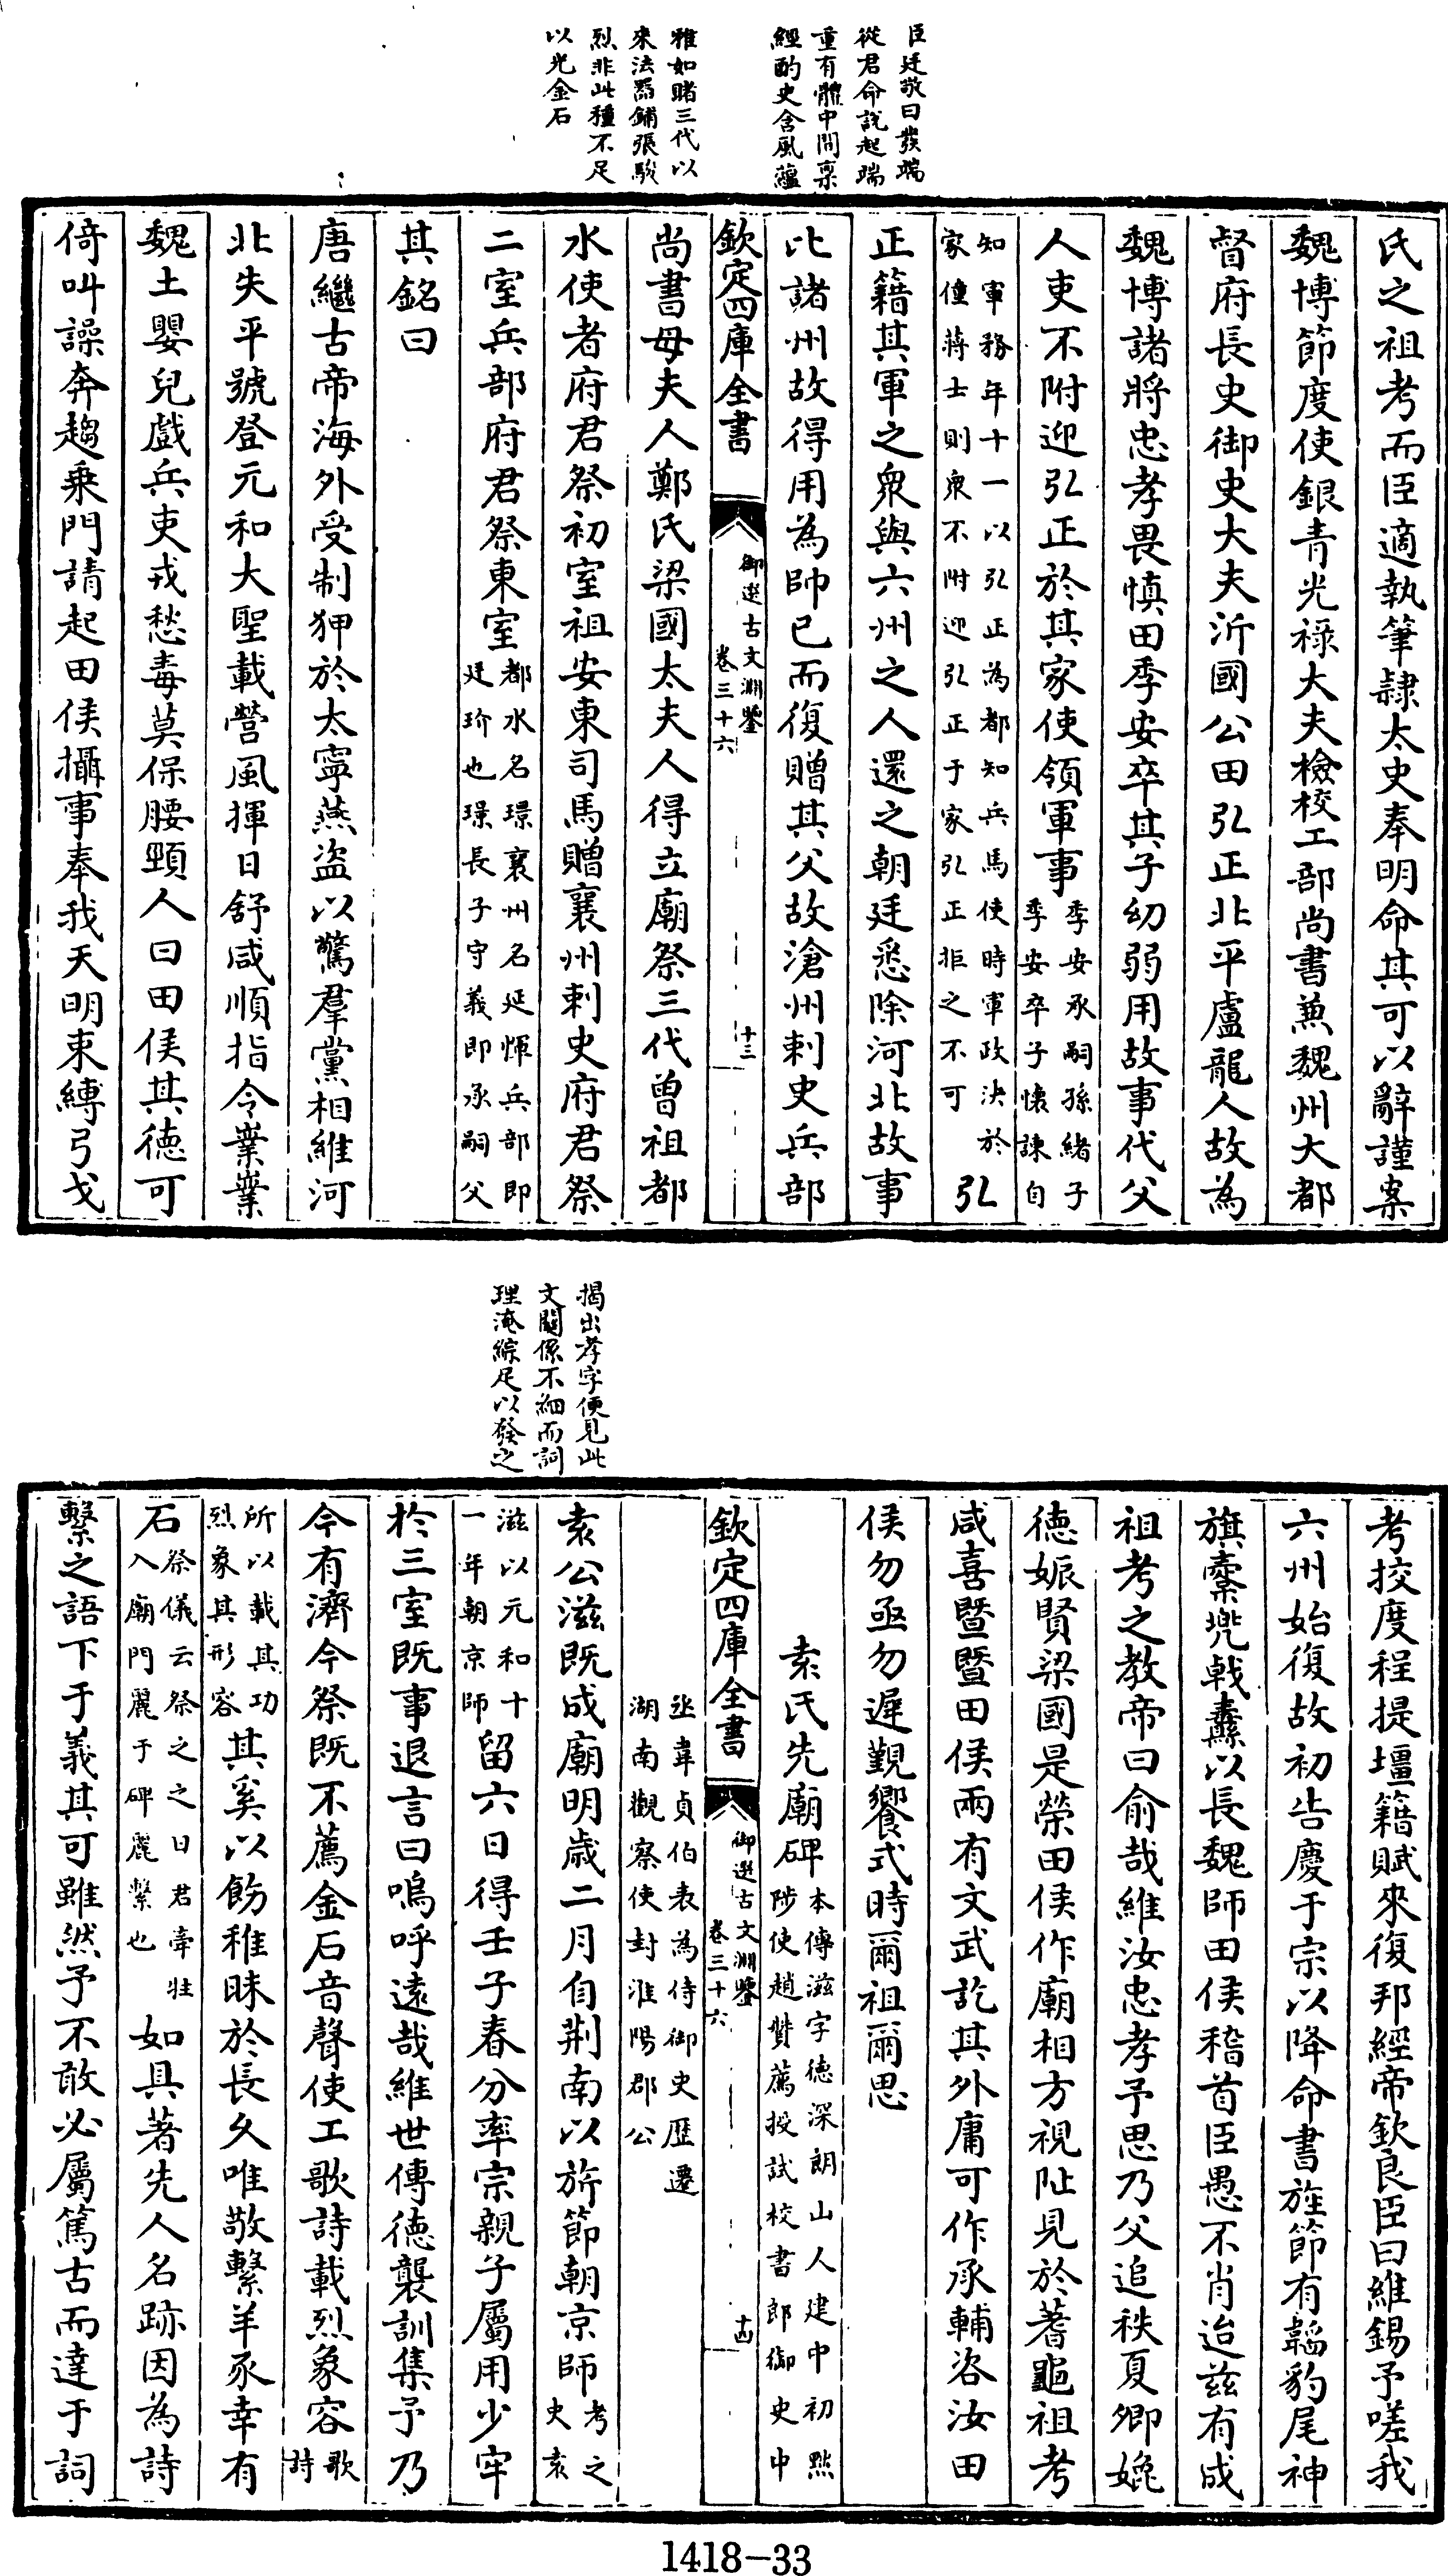 臣廷敬曰發端
從君命說起端
重有體中間稟
經酌史含風蘊
雅如睹三代以
來法器鋪張駿
烈非此種不足
以光金石
氏之祖考而臣適執筆隷太史奉明命其可以辭謹案
魏博節度使銀青光祿大夫檢校工部尚書兼魏州大都
督府長史御史大夫沂國公田弘正北平盧龍人故為
魏博諸將忠孝畏慎田季安卒其子幼弱用故事代父
人吏不附迎弘正於其家使領軍事季安承嗣孫緒子
季安卒子懷諫自
知軍務年十一以弘正為都知兵馬使時軍政決於
家僮蔣士則衆不附迎弘正于家弘正拒之不可
弘
正籍其軍之衆與六州之人還之朝廷悉除河北故事
比諸州故得用為帥已而復贈其父故滄州刺史兵部
欽定四庫全書
御選古文淵鑒
卷三十六
十三
尚書母夫人鄭氏梁國太夫人得立廟祭三代曾祖都
水使者府君祭初室祖安東司馬贈襄州刺史府君祭
二室兵部府君祭東室都水名璟襄州名延惲兵部即
廷玠也璟長子守義即承嗣父
其銘曰
唐繼古帝海外受制狎於太寧燕盜以驚羣黨相維河
北失平號登元和大聖載營風揮日舒咸順指令業業
魏土嬰兒戲兵吏戎愁毒莫保腰頸人曰田侯其德可
倚叫譟奔趨乗門請起田侯攝事奉我天明束縛弓戈
揭出孝字便見此
文關係不細而詞
理淹綜足以發之
考挍度程提壃籍賦來復邦經帝欽良臣曰維錫予嗟我
六州始復故初告慶于宗以降命書旌節有韜豹尾神
旗櫜兠戟纛以長魏師田侯稽首臣愚不肖迨茲有成
祖考之教帝曰俞哉維汝忠孝予思乃父追秩夏卿媲
德娠賢梁國是榮田侯作廟相方視阯見於蓍龜祖考
咸喜暨暨田侯兩有文武訖其外庸可作承輔咨汝田
侯勿亟勿遲覲饗式時爾祖爾思
袁氏先廟碑本傳滋字德深朗山人建中初黜
陟使趙贊薦授試校書郎御史中
欽定四庫全書
御選古文淵鑒
卷三十六
十四
丞韋貞伯表為侍御史歴遷
湖南觀察使封淮陽郡公
袁公滋既成廟明歲二月自荆南以旂節朝京師考之
史袁
滋以元和十
一年朝京師
留六日得壬子春分率宗親子屬用少牢
於三室既事退言曰嗚呼遠哉維世傳德襲訓集予乃
今有濟今祭既不薦金石音聲使工歌詩載烈象容歌
詩
所以載其功
烈象其形容
其奚以飭稚昧於長乆唯敬繫羊豕幸有
石祭儀云祭之之日君牽牲
入廟門麗于碑麗繫也
如具著先人名跡因為詩
繫之語下于義其可雖然予不敢必屬篤古而達于詞
1418-33